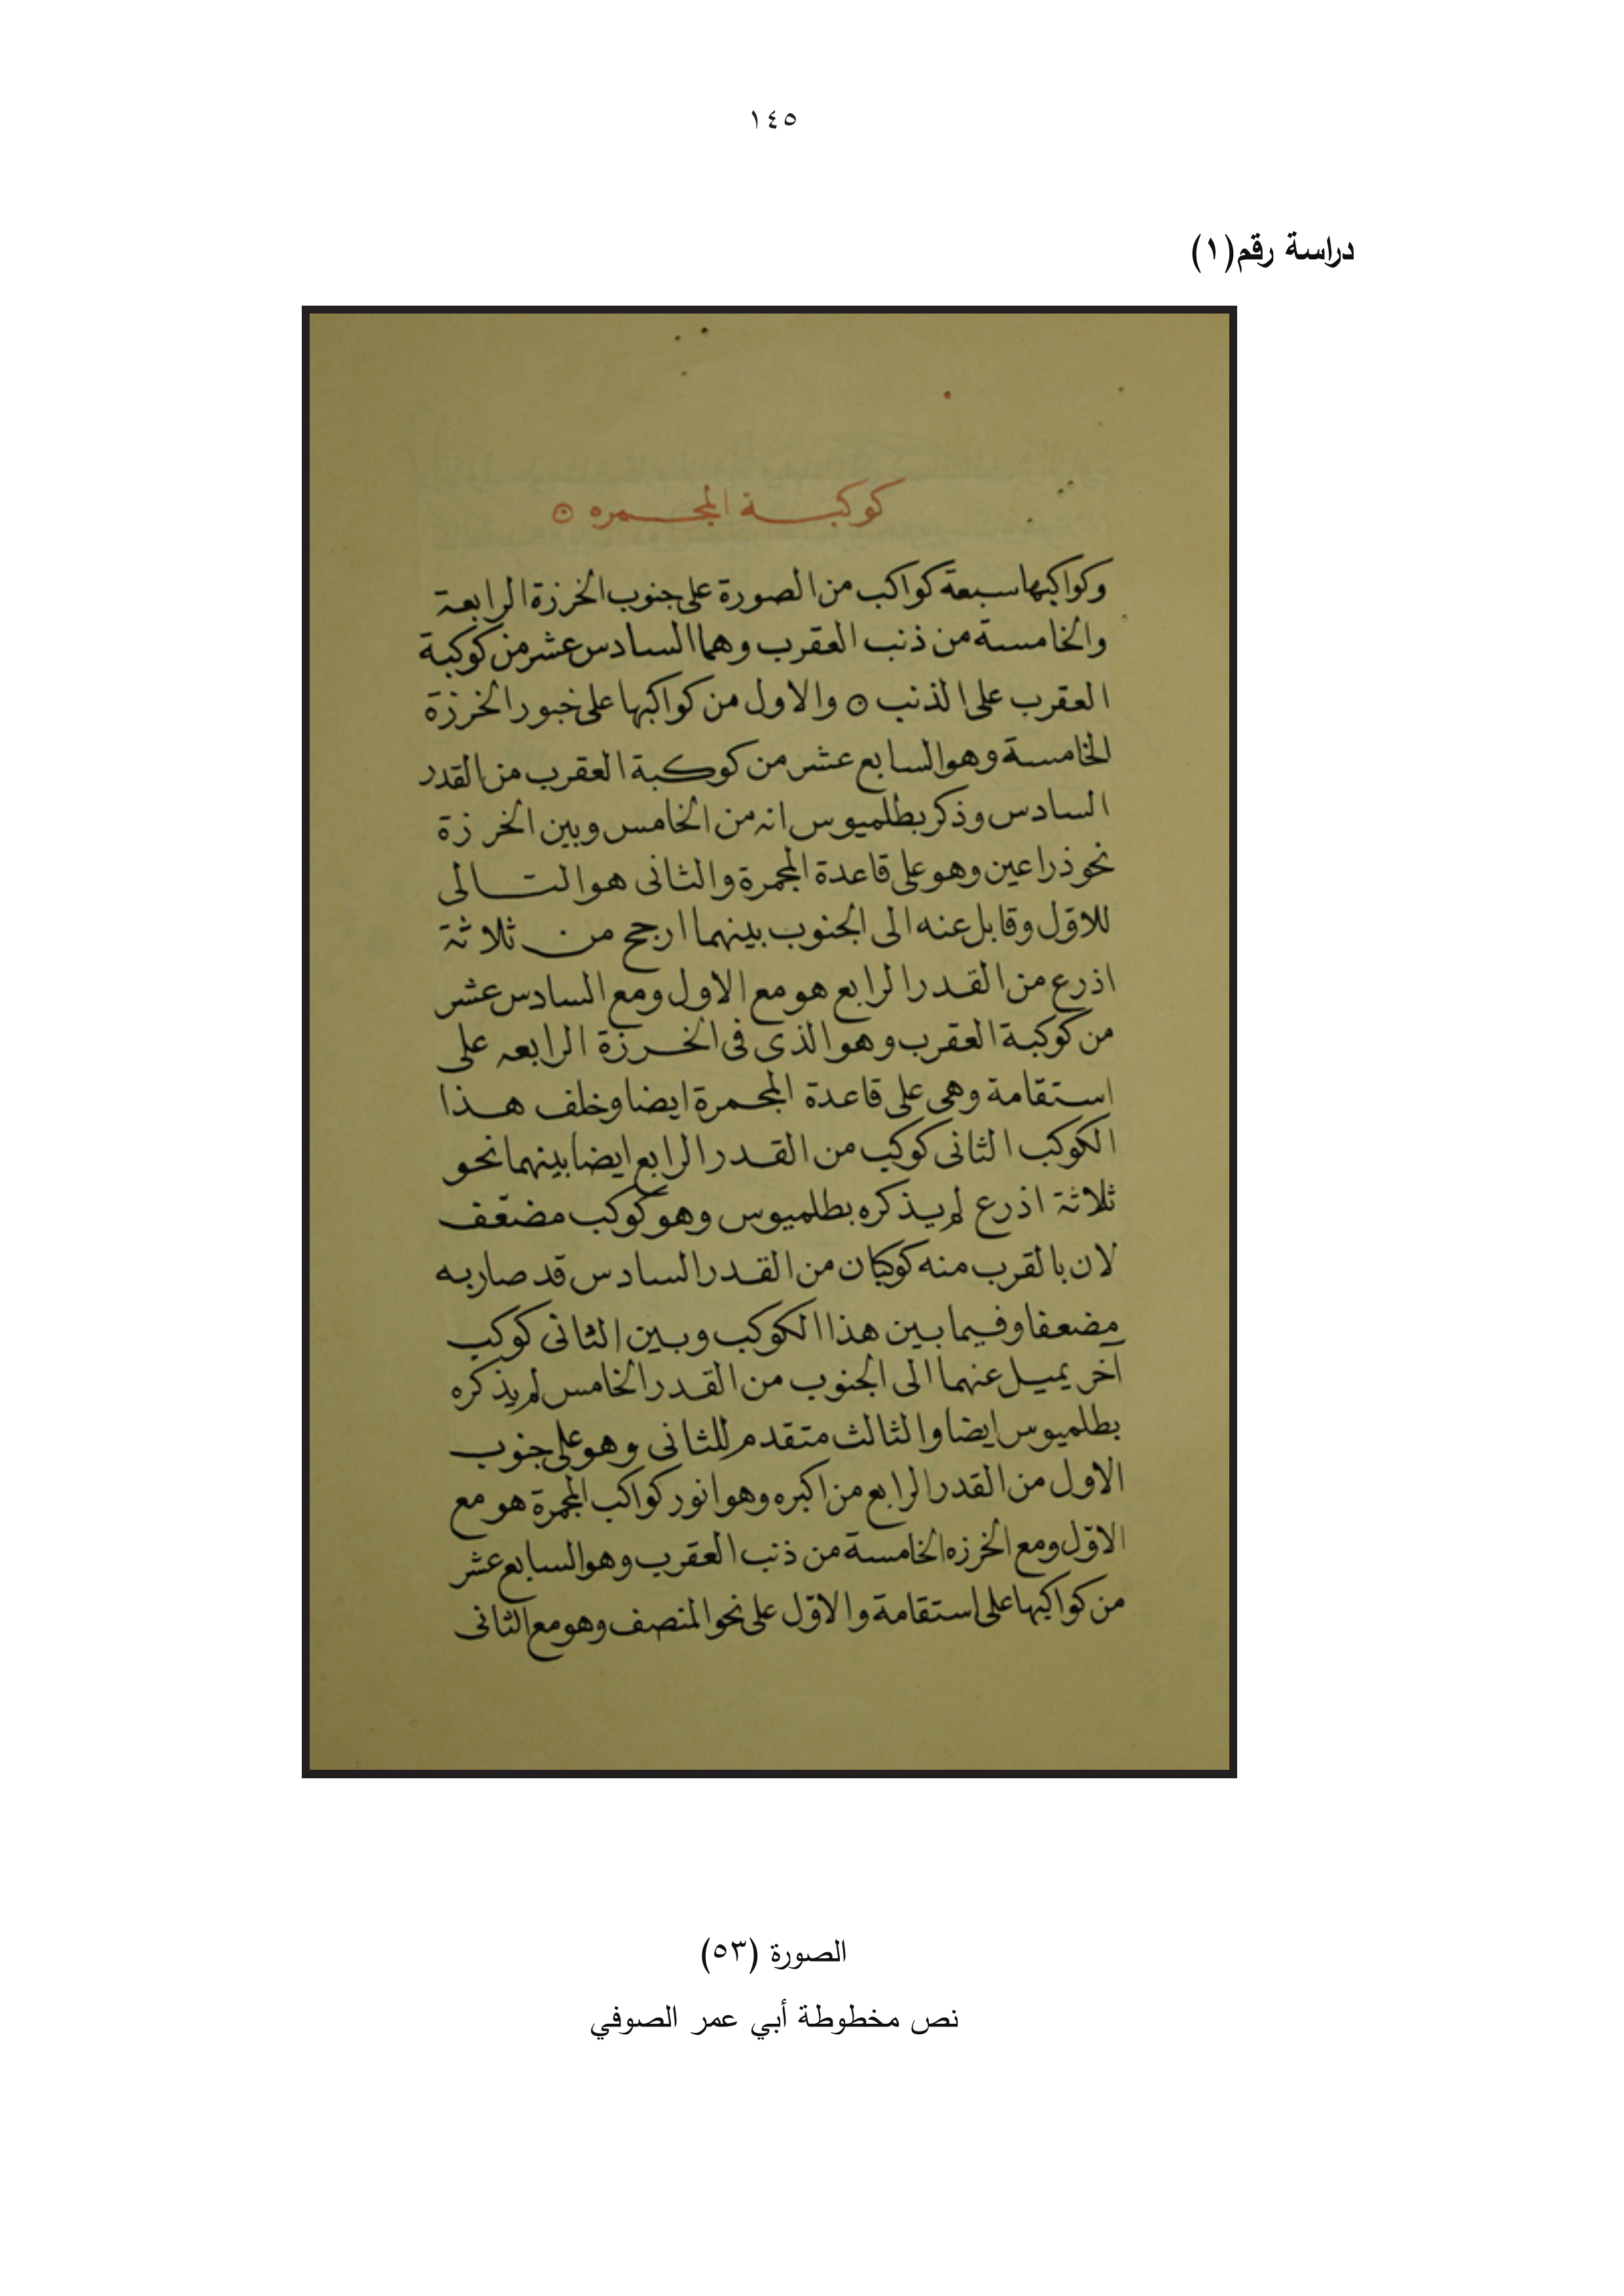 ١٤٥
دراسة رقم(١)
كوكبة المجمره ۞
وكواكبها سبعة كواكب من الصورة على جنوب الخرزة الرابعة
والخامسة من ذنب العقرب وهما السادس عشر من كوكبة
العقرب على الذنب ۞ والاول من كواكبها على خبور الخرزة
الخامسة وهو السابع عشر من كوكبة العقرب من القدر
السادس وذكر بطلميوس انه من الخامس وبين الخرزة
نحو ذراعين وهو على قاعدة المجمرة والثانى هو التالى
للاوّل وقابل عنه الى الجنوب بينهما ارجح من ثلاثة
اذرع من القدر الرابع هو مع الاول ومع السادس عشر
من كوكبة العقرب وهو الذى فى الخرزة الرابعه على
استقامة وهى على قاعدة المجمرة ايضا وخلف هذا
الكوكب الثانى كوكب من القدر الرابع ايضا بينهما نحو
ثلاثة اذرع لم يذكره بطلميوس وهو كوكب مضعّف
لان بالقرب منه كوكبان من القدر السادس قد صار به
مضعفا وفيما بين هذا الكوكب وبين الثانى كوكب
آخر يميل عنهما الى الجنوب من القدر الخامس لم يذكره
بطلميوس ايضا والثالث متقدم للثانى وهو على جنوب
الاول من القدر الرابع من اكبره وهو انور كواكب المجمرة هو مع
الاوّل ومع الخرزه الخامسة من ذنب العقرب وهو السابع عشر
من كواكبها على استقامة والاوّل على نحو المنصف وهو مع الثانى
الصورة (٥٣)
نص مخطوطة أبي عمر الصوفي